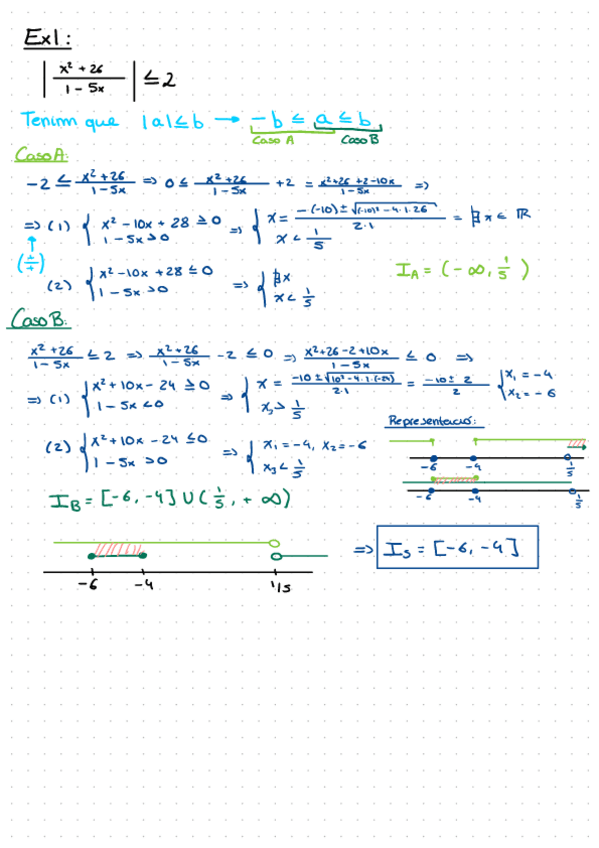 Ex1:
| x² + 26 / 1 - 5x | ≤ 2
Tenim que |a| ≤ b → -b ≤ a ≤ b
Caso A Caso B
Caso A:
-2 ≤ x²+26 / 1-5x ⇒ 0 ≤ x²+26 / 1-5x + 2 = x²+26+2-10x / 1-5x ⇒
⇒ (1) { x² - 10x + 28 ≥ 0 ⇒ { x = -(-10) ± √(-10)² - 4·1·26 / 2·1 = ∄ x ∈ ℝ
1 - 5x > 0 x < 1/5
(+/+)
(2) { x² - 10x + 28 ≤ 0 ⇒ { ∄x
1 - 5x > 0 x < 1/5
I_A = (-∞, 1/5)
Caso B:
x²+26 / 1-5x ≤ 2 ⇒ x²+26 / 1-5x - 2 ≤ 0 ⇒ x²+26-2+10x / 1-5x ≤ 0 ⇒
⇒ (1) { x² + 10x - 24 ≥ 0 ⇒ { x = -10 ± √10² - 4·1·(-24) / 2·1 = -10 ± 2 / 2 { x₁ = -4
1 - 5x < 0 x > 1/5 x₂ = -6
Representació:
-6 -4 1/5
(2) { x² + 10x - 24 ≤ 0 ⇒ { x₁ = -4, x₂ = -6
1 - 5x > 0 x₃ < 1/5
-6 -4 1/5
I_B = [-6, -4] ∪ (1/5, +∞)
⇒ I_S = [-6, -4]
-6 -4 1/5